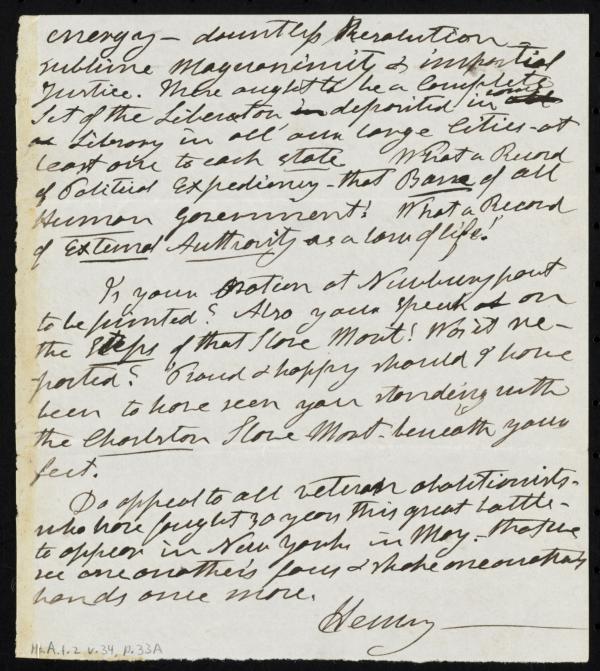 energy – dauntless Resolution –
sublime Magnanimity & impartial
Justice. There ought to be a complete
Set of the Liberator deposited in some
Library in all our large Cities – at
least one to each state What a Record
of Political Expediency – that Bane of all
Human Government! What a Record
of External Authority as a law of life!
Is your Oration at Newburyport
to be printed? Also your speech on
the Steps of that Slave Mart! Was it re–
ported? Proud & happy should I have
been to have seen you standing with
the Charleston Slave Mart – beneath your
feet.
Do appeal to all veteran abolitionists –
who have fought 30 years this great battle –
to appear in New York in May – that we
see one another's faces & shake one another's
hands once more.
Henry
Ms.A.1.2 v.34, p.33A